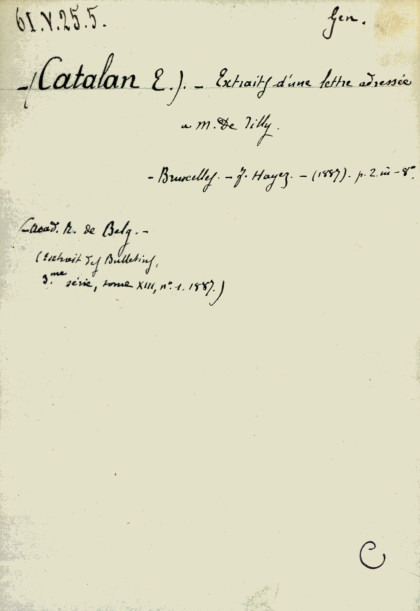 61.V.25.5. Gen.
-(Catalan E.). - Extraits d'une lettre adressée
a M. De Tilly.
- Bruxelles. - F. Hayez. - (1887). p. 2. in-8°
(Acad. R. de Belg. -
(Extrait des Bulletins,
3.me série, tome XIII, n°. 1. 1887.)
C